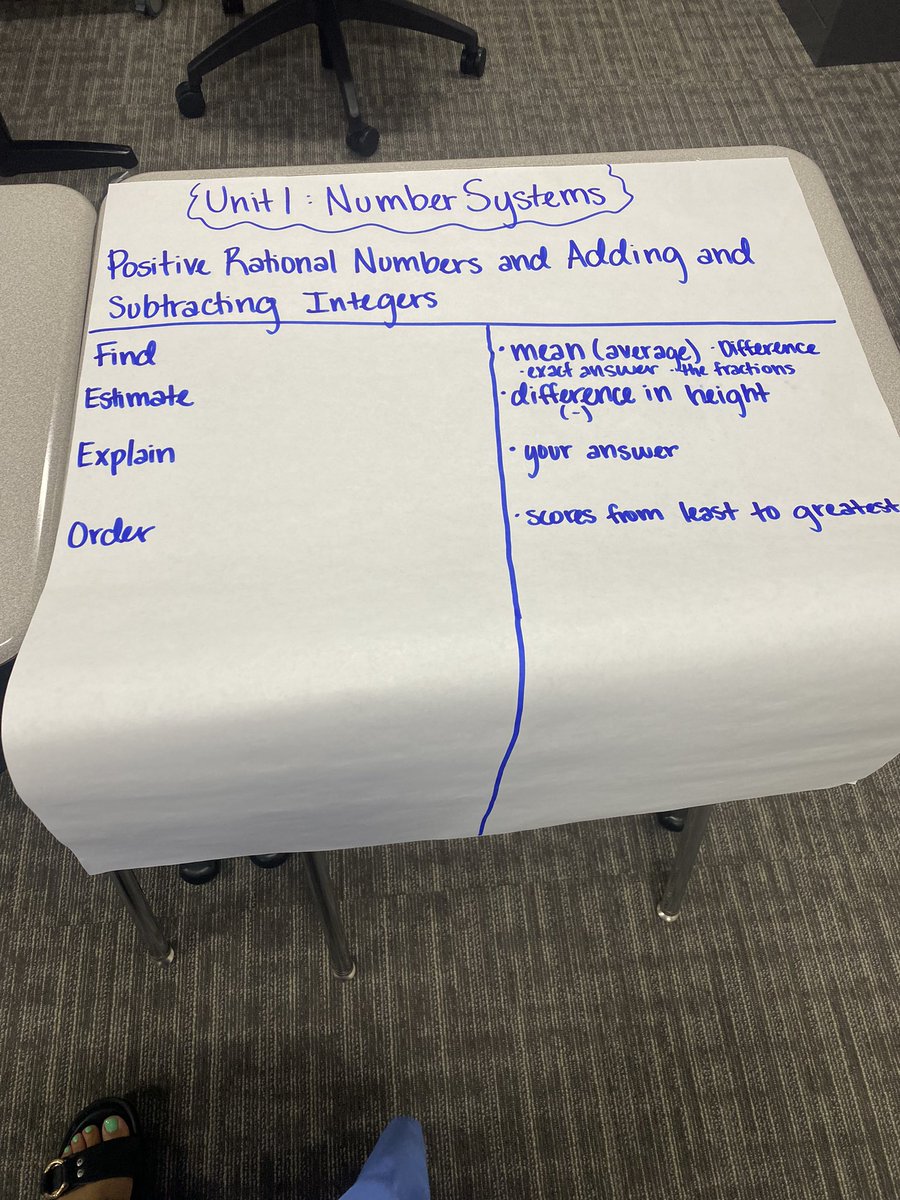 Unit 1: Number Systems
Positive Rational Numbers and Adding and
Subtracting Integers
Find
· mean (average) · Difference
· exact answer · the fractions
Estimate
· difference in height
(-)
Explain
· your answer
Order
· scores from least to greatest